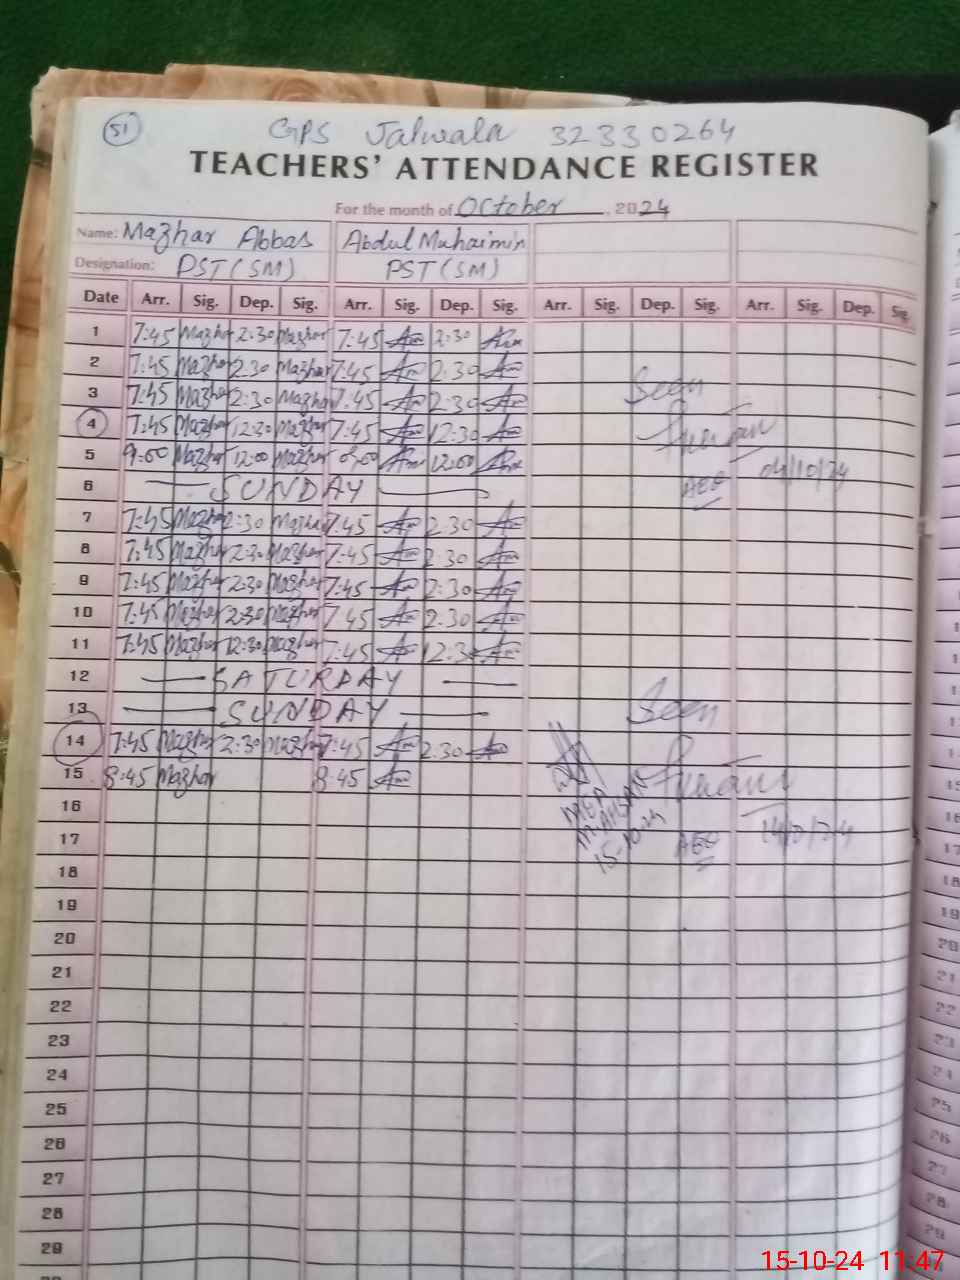 51
GPS Jalwala 32330264
TEACHERS' ATTENDANCE REGISTER
For the month of October, 2024
Name: Mazhar Abbas Abdul Muhaimin
Designation: PST(SM) PST(SM)
Date Arr. Sig. Dep. Sig. Arr. Sig. Dep. Sig. Arr. Sig. Dep. Sig. Arr. Sig. Dep. Sig.
1 7:45 Mazhar 2:30 Mazhar 7:45 Am 2:30 Am
2 7:45 Mazhar 2:30 Mazhar 7:45 Am 2:30 Am
3 7:45 Mazhar 2:30 Mazhar 7:45 Am 2:30 Am Seen
4 7:45 Mazhar 12:30 Mazhar 7:45 Am 12:30 Am
5 9:00 Mazhar 12:00 Mazhar Am 12:00 Am 04/10/24
6 SUNDAY AEO
7 7:45 Mazhar 2:30 Mazhar 7:45 Am 2:30 Am
8 7:45 Mazhar 2:30 Mazhar 7:45 Am 2:30 Am
9 7:45 Mazhar 2:30 Mazhar 7:45 Am 2:30 Am
10 7:45 Mazhar 2:30 Mazhar 7:45 Am 2:30 Am
11 7:45 Mazhar 12:30 Mazhar 7:45 Am 12:30 Am
12 SATURDAY
13 SUNDAY Seen
14 7:45 Mazhar 2:30 Mazhar 7:45 Am 2:30 Am
15 8:45 Mazhar 8:45 Am
16 MEA
M. AHSAN
17 15-10-24 AEO 14/10/24
18
19
20
21
22
23
24
25
26
27
28
29
15-10-24 11:47